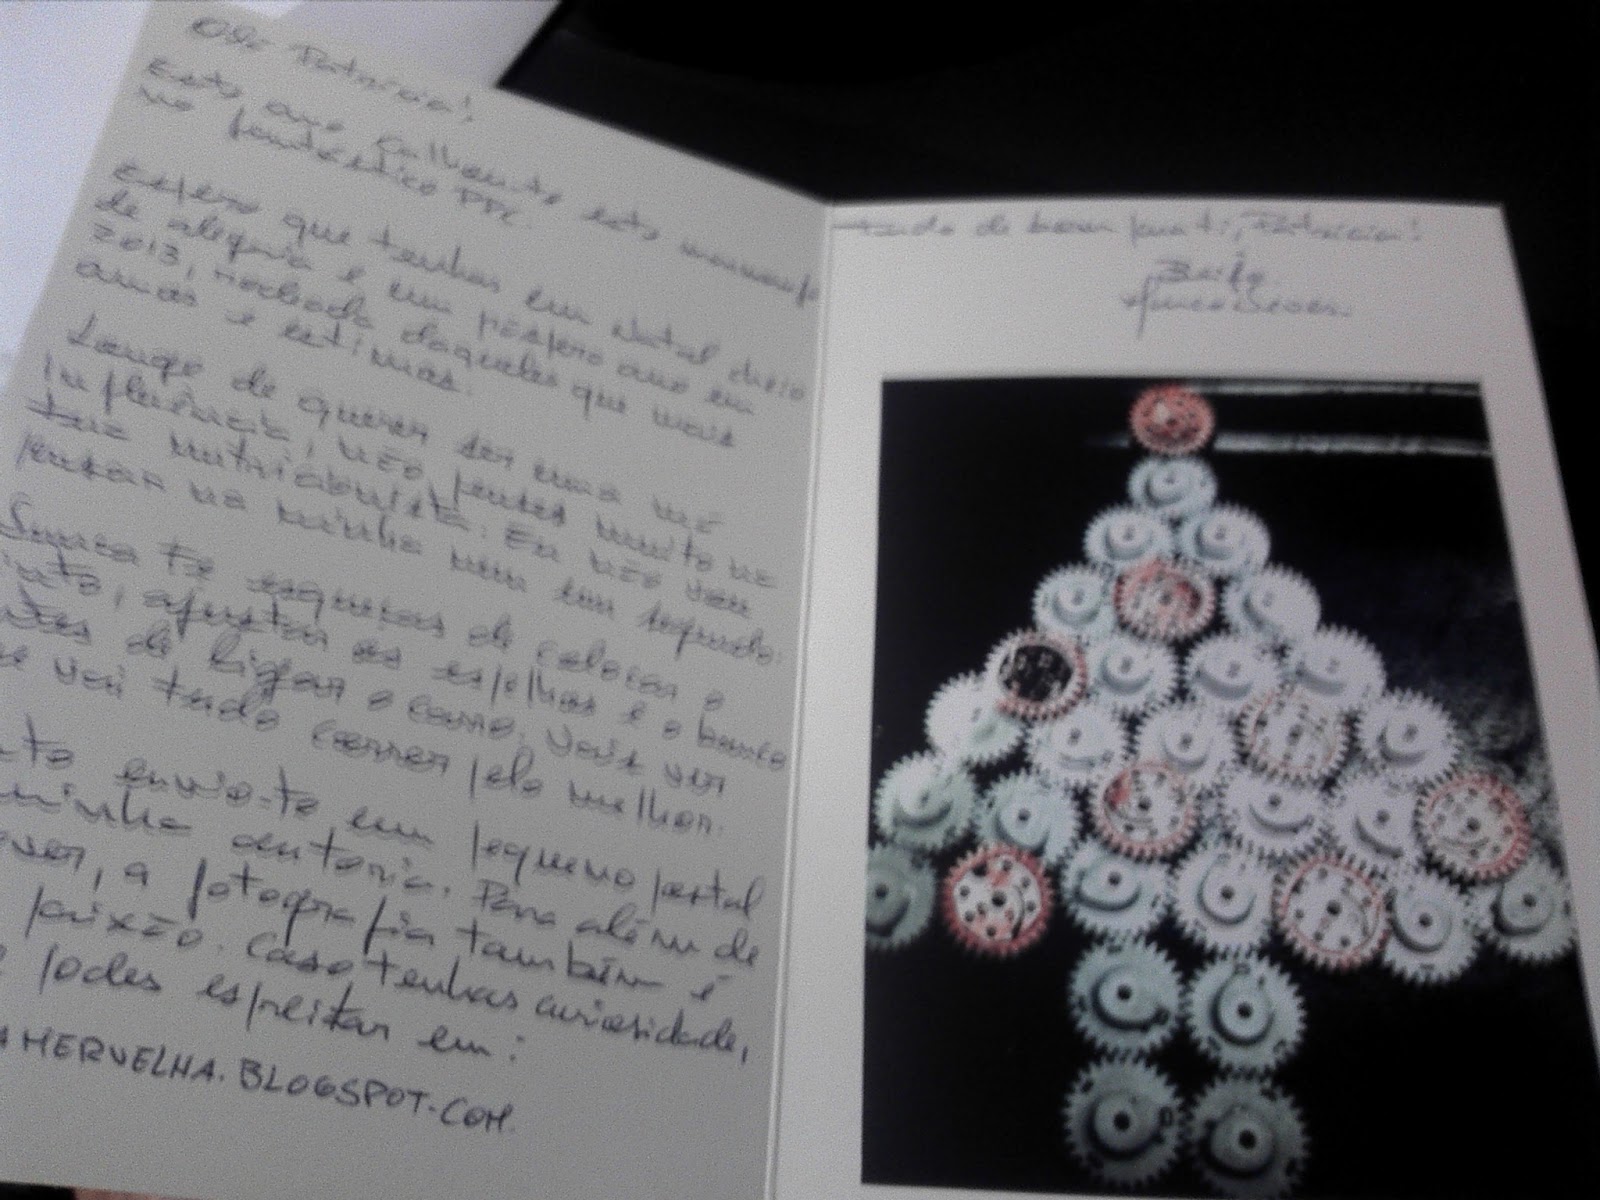 Olá Patrícia!
Este ano calhou-te este marmanjo
no fantástico PPC.
Espero que tenhas um Natal cheio
de alegria e um próspero ano em
2013, rodeada daqueles que mais
amas e estimas.
Longe de querer ser uma má
influência, não penses muito na
tua nutricionista. Eu não vou
pensar na minha nem um segundo.
Nunca te esqueças de colocar o
cinto, ajustar os espelhos e o banco
antes de ligar o carro. Vais ver
que vai tudo correr pelo melhor.
envio-te um pequeno postal
minha autoria. Para além de
a fotografia também é
paixão. Caso tenhas curiosidade,
podes espreitar em:
HERVELHA.BLOGSPOT.COM
tudo de bom para ti, Patrícia!